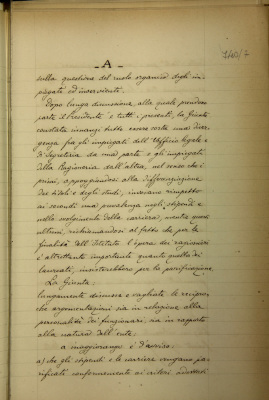 - A -
sulla questione del ruolo organico degli im-
piegati ed inservienti.
Dopo lunga discussione alla quale prendono
parte il Presidente e tutti i presenti, la Giunta
constata innanzi tutto essere sorta una diver-
genza fra gli impiegati dell'Ufficio legale e
di Segreteria da una parte e gli impiegati
della Ragioneria dall'altra, nel senso che i
primi, appoggiandosi alla differenziazione
dei titoli e degli studi, rispetto
ai secondi una prevalenza negli stipendi e
nello svolgimento della carriera, mentre questi
ultimi, richiamandosi al fatto che per le
finalità dell'Istituto l'opera dei ragionieri
è altrettanto importante quanto quella dei
laureati, insisterebbero per la parificazione.
La Giunta:
lungamente discusse e vagliate le recipro-
che argomentazioni sia in relazione alla
personalità dei funzionari, sia in rapporto
alla natura dell'ente;
a maggioranza è d'avviso:
a) che gli stipendi e le carriere vengano pa-
rificate conformemente ai criteri adottati